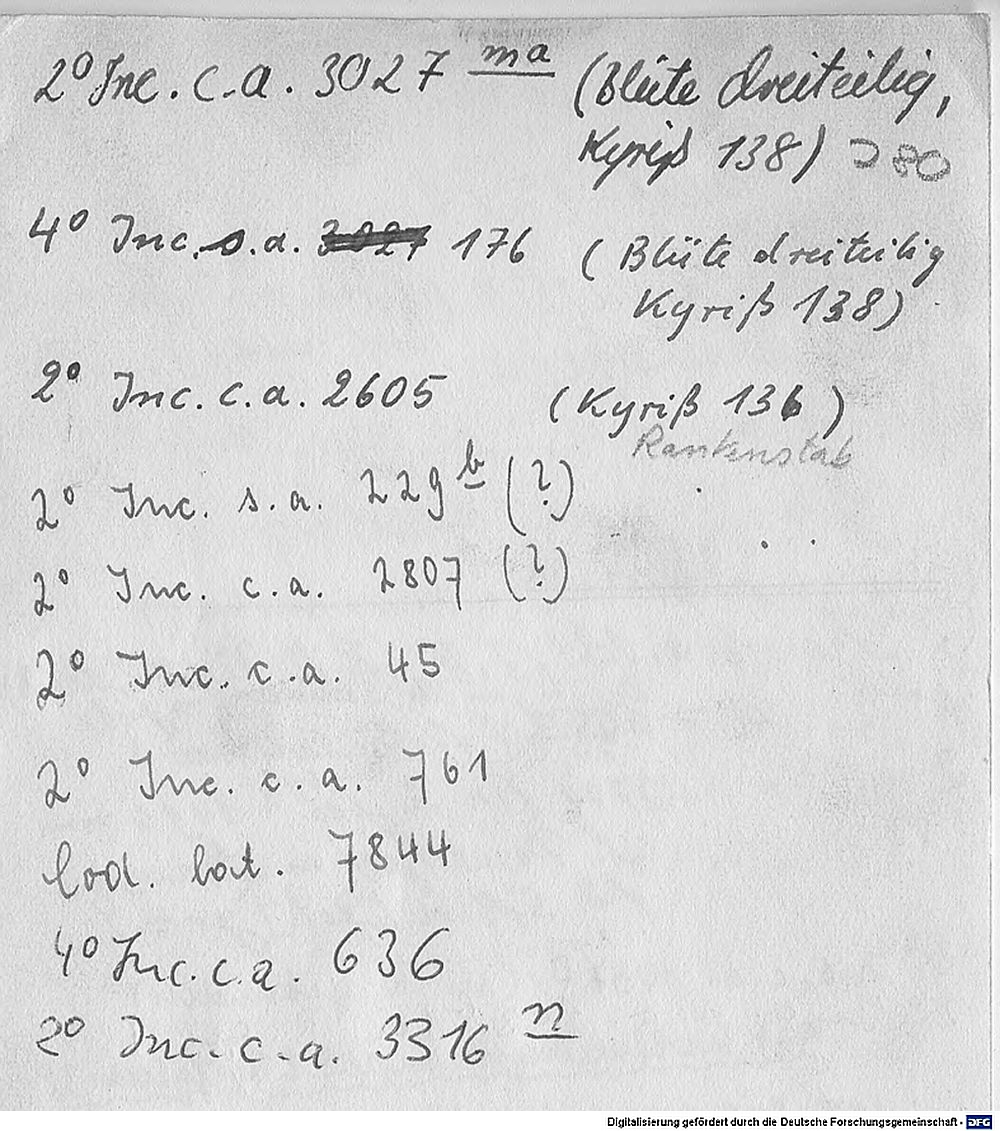 2° Inc. c.a. 3027 ma (Blüte dreiteilig,
Kyriß 138) 80
4° Inc. s.a. 3027 176 (Blüte dreiteilig
Kyriß 138)
2° Inc. c.a. 2605 (Kyriß 136)
Rankenstab
2° Inc. s.a. 229 b (?)
2° Inc. c.a. 2807 (?)
2° Inc. c.a. 45
2° Inc. c.a. 761
Cod. lat. 7844
4° Inc. c.a. 636
2° Inc. c.a. 3316 n
Digitalisierung gefördert durch die Deutsche Forschungsgemeinschaft - DFG